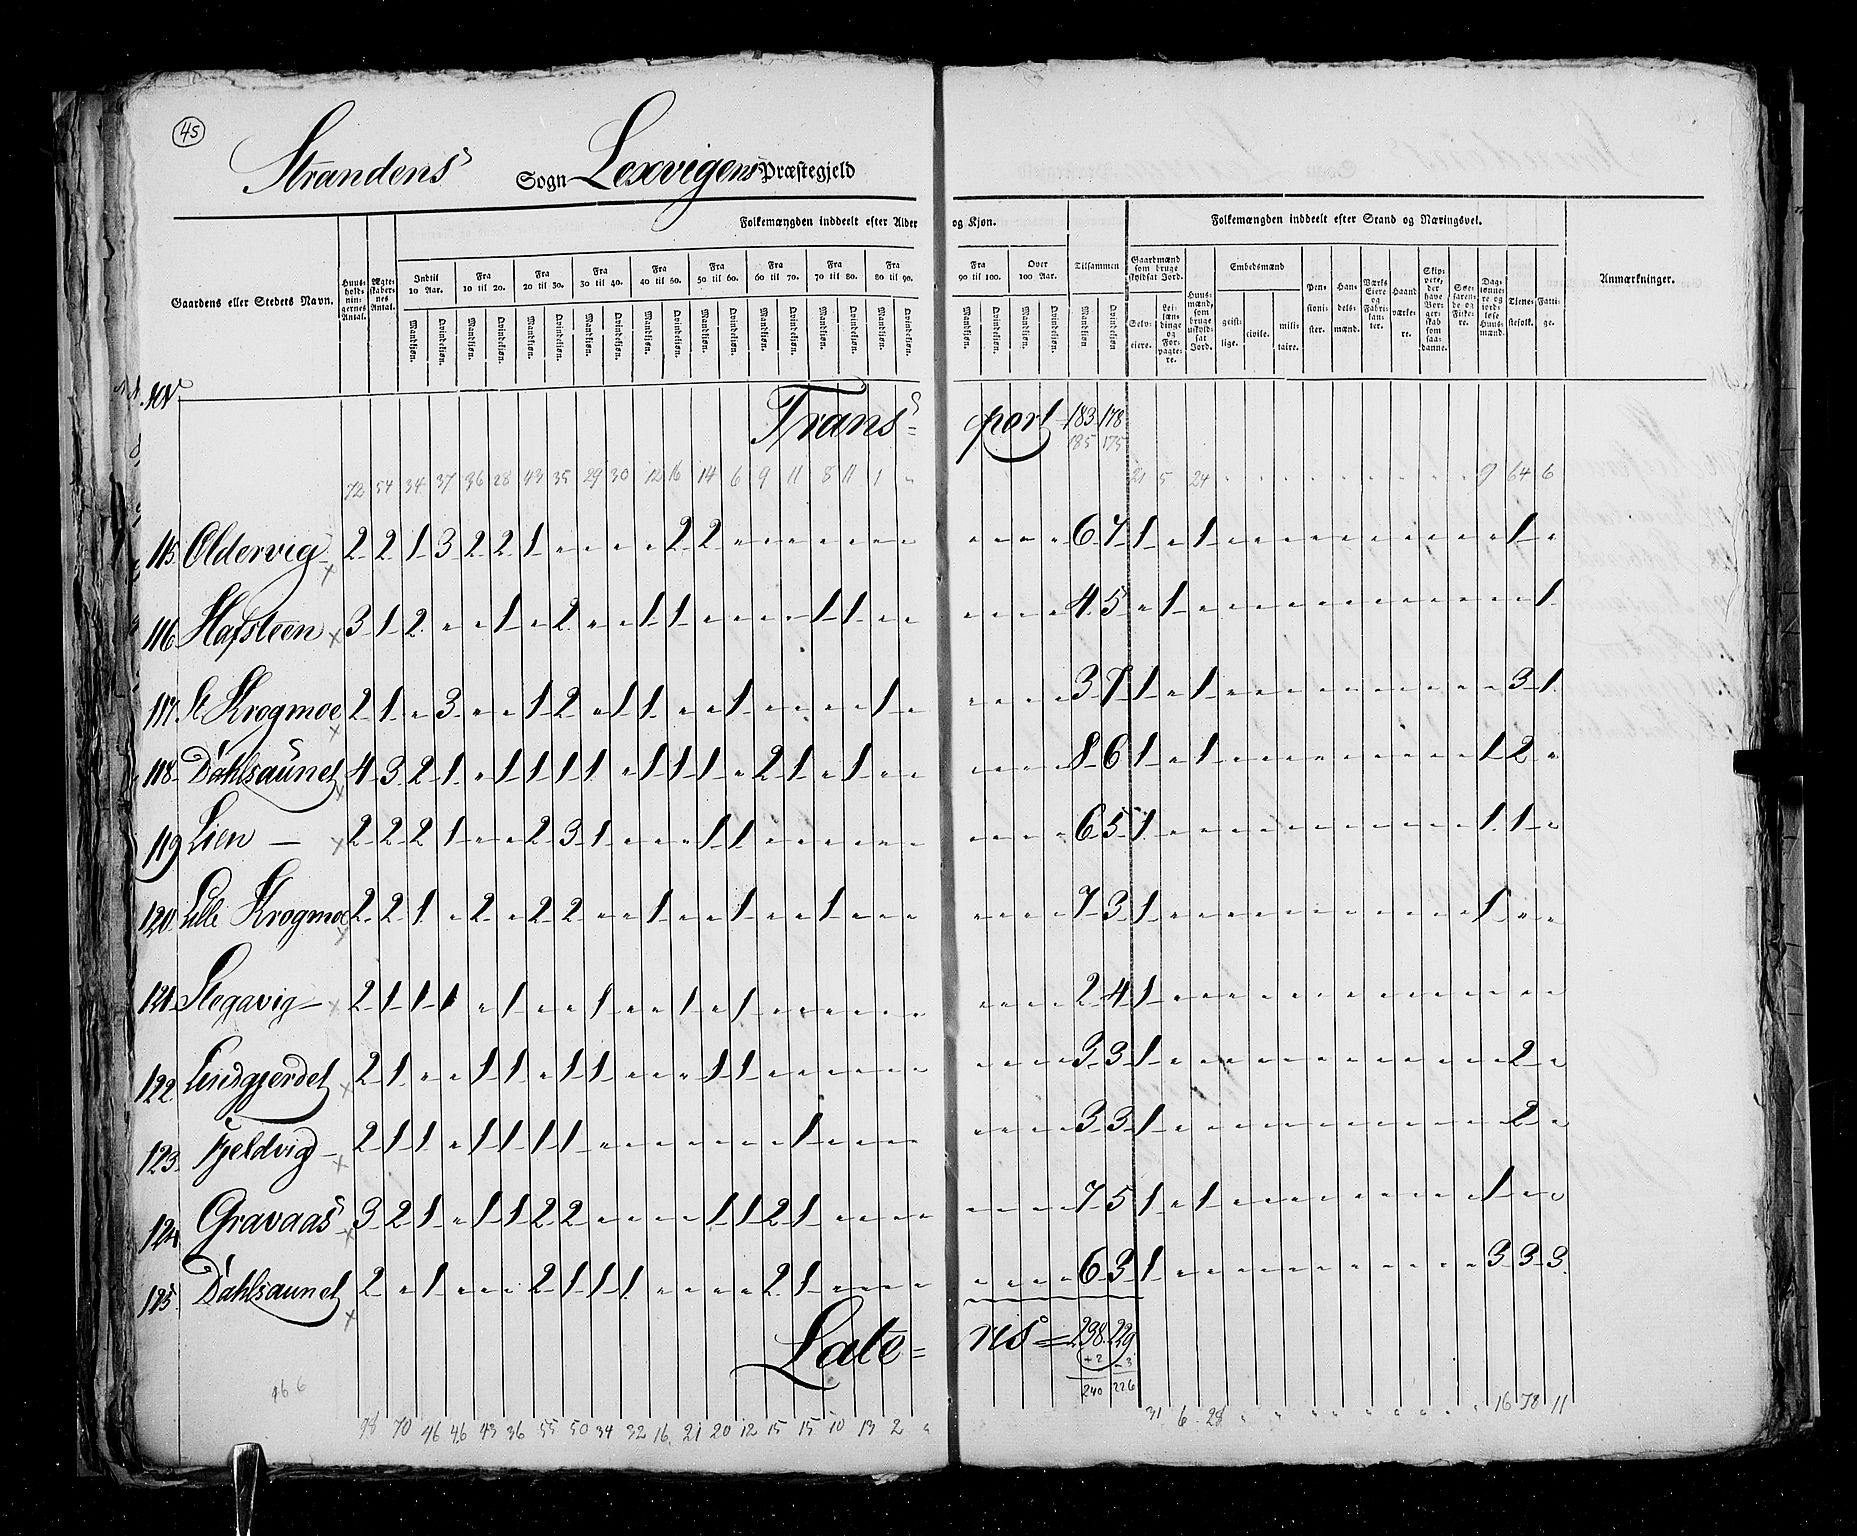 45
Strandens Sogn Lexvigens Præstegjeld
Folkemængden inddeelt efter Alder og Kjøn. Folkemængden inddeelt efter Stand og Næringsvei.
Gaardens eller Stedets Navn. Huus-holdnin-gernes Antal. Ægte-skaber-nes Antal. Indtil 10 Aar. Fra 10 til 20. Fra 20 til 30. Fra 30 til 40. Fra 40 til 50. Fra 50 til 60. Fra 60 til 70. Fra 70 til 80. Fra 80 til 90. Fra 90 til 100. Over 100 Aar. Tilsammen Gaardmænd som bruge skyldsat Jord. Huus-mænd, som bruge uskyld-sat Jord. Embedsmænd Pen-sioni-ster. Han-dels-mænd. Værks Eiere og Fabri-kan-ter. Haand-værke-re. Skip-pere, der have Bor-ger-skab som saa-danne. Søe-faren-de og Fiske-re. Dag-lønne-re og jordløse Huus-mænd. Tiene-stefolk. Fatti-ge. Anmærkninger.
Mandkjøn. Qvindekjøn. Selv-eiere. Lei-læn-dinge og For-pagte-re. geist-lige. civile. mili-taire.
No
Trans= port 183 178
185 175
72 54 34 37 36 28 43 35 29 30 12 16 14 6 9 11 8 11 1 " 21 5 24 " " " " " " " " " 9 64 6
115 Oldervig 2 2 1 3 2 2 1 " " " " 2 2 " " " " " " " " " " 6 7 1 " 1 " " " " " " " " " " 1 "
116 Hafsteen 3 1 2 " " 1 " 2 " " 1 1 " " " " 1 1 " " " " " " 4 5 " 1 " " " " " " " " " " " " 1
117 St Krogmoe 2 1 " 3 " " 1 2 " 1 1 " " 1 " " " " 1 " " " " " 3 7 1 " 1 " " " " " " " " " " 3 1
118 Dahlsaunet 4 3 2 1 " 1 1 1 1 " 1 1 1 " 2 1 " 1 " " " " " " 8 6 1 " 1 " " " " " " " " " 1 2 "
119 Lien 2 2 2 1 " " 2 3 1 " " " 1 1 " " " " " " " " " " 6 5 1 " " " " " " " " " " " 1 1 "
120 Lille Krogmoe 2 2 1 " 2 " 2 2 " " 1 " " 1 " " 1 " " " " " " " 7 3 1 " " " " " " " " " " " 1 " "
121 Stegavig 2 1 1 1 " 1 " " 1 " " 1 " 1 " " " " " " " " " " 2 4 1 " " " " " " " " " " " " " "
122 Lindgjerdet 2 1 " " 1 1 " 1 1 " " " 1 1 " " " " " " " " " " 3 3 1 " " " " " " " " " " " " 2 "
123 Fjeldvig 2 1 1 " 1 1 1 1 " " " " " " " 1 " " " " " " " " 3 3 1 " " " " " " " " " " " " 2 "
124 Gravaas 3 2 1 " 1 1 2 2 " " " " 1 1 2 1 " " " " " " " " 7 5 1 " 1 " " " " " " " " " 1 " "
125 Dahlsaunet 2 " 1 " " " 2 1 1 1 " " " " 2 1 " " " " " " " " 6 3 1 " " " " " " " " " " " 3 3 3
Late= ris= 238 229
+2 -3
240 226
466
98 70 46 46 43 36 55 50 34 32 16 21 20 12 15 15 10 13 2 " 31 6 28 " " " " " " " " " 16 78 11